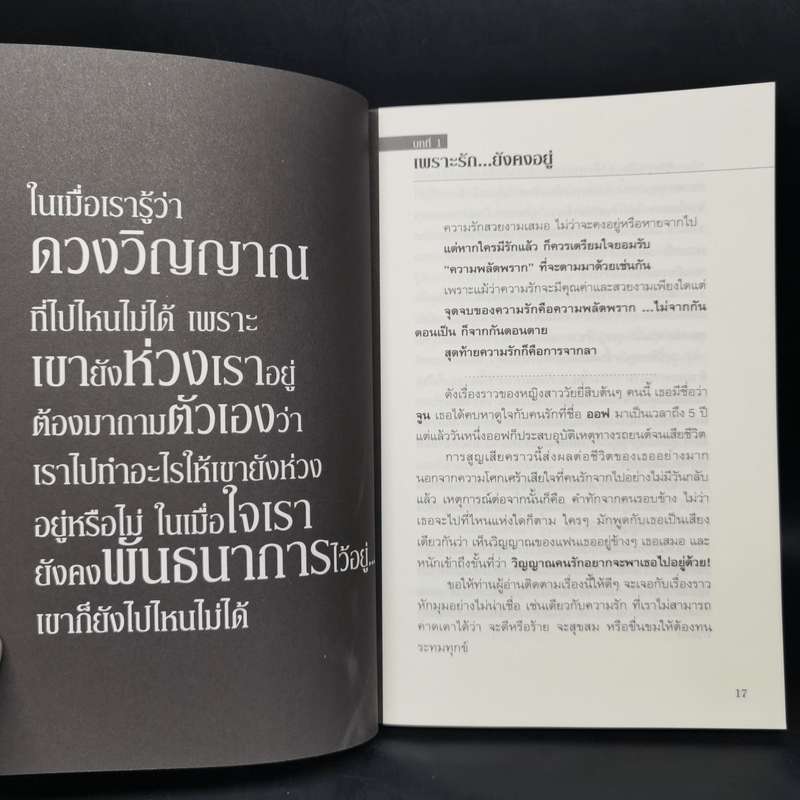 ในเมื่อเรารู้ว่า
ดวงวิญญาณ
ที่ไปไหนไม่ได้ เพราะ
เขายังห่วงเราอยู่
ต้องมาถามตัวเองว่า
เราไปทำอะไรให้เขายังห่วง
อยู่หรือไม่ ในเมื่อใจเรา
ยังคงพันธนาการไว้อยู่...
เขาก็ยังไปไหนไม่ได้
บทที่ 1
เพราะรัก...ยังคงอยู่
ความรักสวยงามเสมอ ไม่ว่าจะคงอยู่หรือหายจากไป
แต่หากใครมีรักแล้ว ก็ควรเตรียมใจยอมรับ
“ความพลัดพราก” ที่จะตามมาด้วยเช่นกัน
เพราะแม้ว่าความรักจะมีคุณค่าและสวยงามเพียงใดแต่
จุดจบของความรักคือความพลัดพราก ...ไม่จากกัน
ตอนเป็น ก็จากกันตอนตาย
สุดท้ายความรักก็คือการจากลา
ดังเรื่องราวของหญิงสาววัยยี่สิบต้นๆ คนนี้ เธอมีชื่อว่า
จูน เธอได้คบหาดูใจกับคนรักที่ชื่อ ออฟ มาเป็นเวลาถึง 5 ปี
แต่แล้ววันหนึ่งออฟก็ประสบอุบัติเหตุทางรถยนต์จนเสียชีวิต
การสูญเสียคราวนี้ส่งผลต่อชีวิตของเธออย่างมาก
นอกจากความโศกเศร้าเสียใจที่คนรักจากไปอย่างไม่มีวันกลับ
แล้ว เหตุการณ์ต่อจากนั้นก็คือ คำทักจากคนรอบข้าง ไม่ว่า
เธอจะไปที่ไหนแห่งใดก็ตาม ใครๆ มักพูดกับเธอเป็นเสียง
เดียวกันว่า เห็นวิญญาณของแฟนเธออยู่ข้างๆ เธอเสมอ และ
หนักเข้าถึงขั้นที่ว่า วิญญาณคนรักอยากจะพาเธอไปอยู่ด้วย!
ขอให้ท่านผู้อ่านติดตามเรื่องนี้ให้ดีๆ จะเจอกับเรื่องราว
หักมุมอย่างไม่น่าเชื่อ เช่นเดียวกับความรัก ที่เราไม่สามารถ
คาดเดาได้ว่า จะดีหรือร้าย จะสุขสม หรือขื่นขมให้ต้องทน
ระทมทุกข์
17